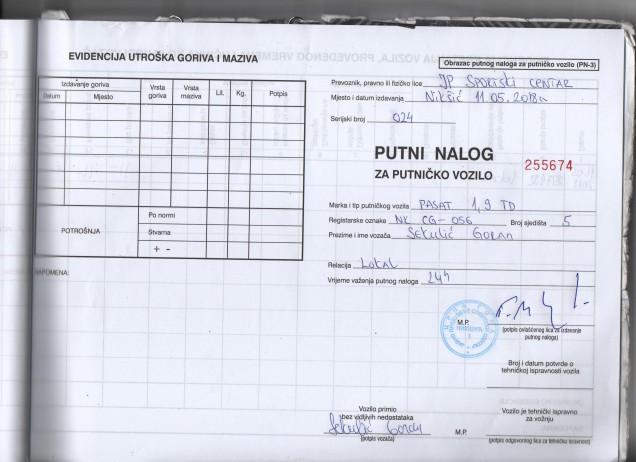 EVIDENCIJA UTROŠKA GORIVA I MAZIVA
Izdavanje goriva
Datum Mjesto Vrsta goriva Vrsta maziva Lit. Kg. Potpis
POTROŠNJA
Po normi
Stvarna
+ -
NAPOMENA:
Obrazac putnog naloga za putničko vozilo (PN-3)
Prevoznik, pravno ili fizičko lice JP SPORTSKI CENTAR
Mjesto i datum izdavanja Nikšić 11.05.2018.
Serijski broj 024
PUTNI NALOG
ZA PUTNIČKO VOZILO
255674
Marka i tip putničkog vozila PASAT 1,9 TD
Registarske oznake NK CG-056 Broj sjedišta 5
Prezime i ime vozača Sekulić Goran
Relacija Lokal
Vrijeme važenja putnog naloga 24h
M.P.
(potpis ovlašćenog lica za izdavanje
putnog naloga)
Broj i datum potvrde o
tehničkoj ispravnosti vozila
Vozilo primio
bez vidljivih nedostataka
Sekulić Goran
(potpis vozača)
M.P.
Vozilo je tehnički ispravno
za vožnju
(potpis odgovornog lica za tehničku ispravnost)